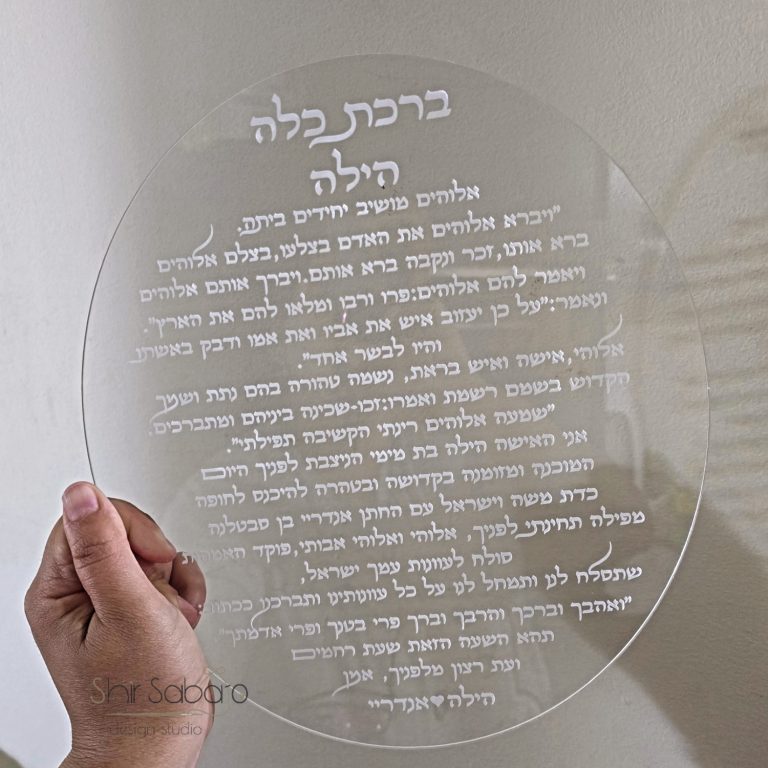 ברכת כלה
הילה
אלוהים מושיב יחידים ביתה.
"ויברא אלוהים את האדם בצלעו, בצלם אלוהים
ברא אותו, זכר ונקבה ברא אותם. ויברך אותם אלוהים
ויאמר להם אלוהים: פרו ורבו ומלאו להם את הארץ".
ונאמר: "על כן יעזוב איש את אביו ואת אמו ודבק באשתו
והיו לבשר אחד".
אלוהי, אישה ואיש בראת, נשמה טהורה בהם נתת ושמך
הקדוש בשמם רשמת ואמרו: זכו-שכינה ביניהם ומתברכים:
"שמעה אלוהים רינתי הקשיבה תפילתי".
אני האישה הילה בת מימי הניצבת לפניך היום
המוכנה ומזומנה בקדושה ובטהרה להיכנס לחופה
כדת משה וישראל עם החתן אנדריי בן סבטלנה
מפילה תחינתי לפניך, אלוהי ואלוהי אבותי, פוקד האמהות
סולח לעוונות עמך ישראל,
שתסלח לנו ותמחל לנו על כל עוונותינו ותברכנו ככתוב:
"ואהבך וברכך והרבך וברך פרי בטנך ופרי אדמתך".
תהא השעה הזאת שעת רחמים
ועת רצון מלפניך, אמן
הילה♥אנדריי
Shir Sabaro
design studio